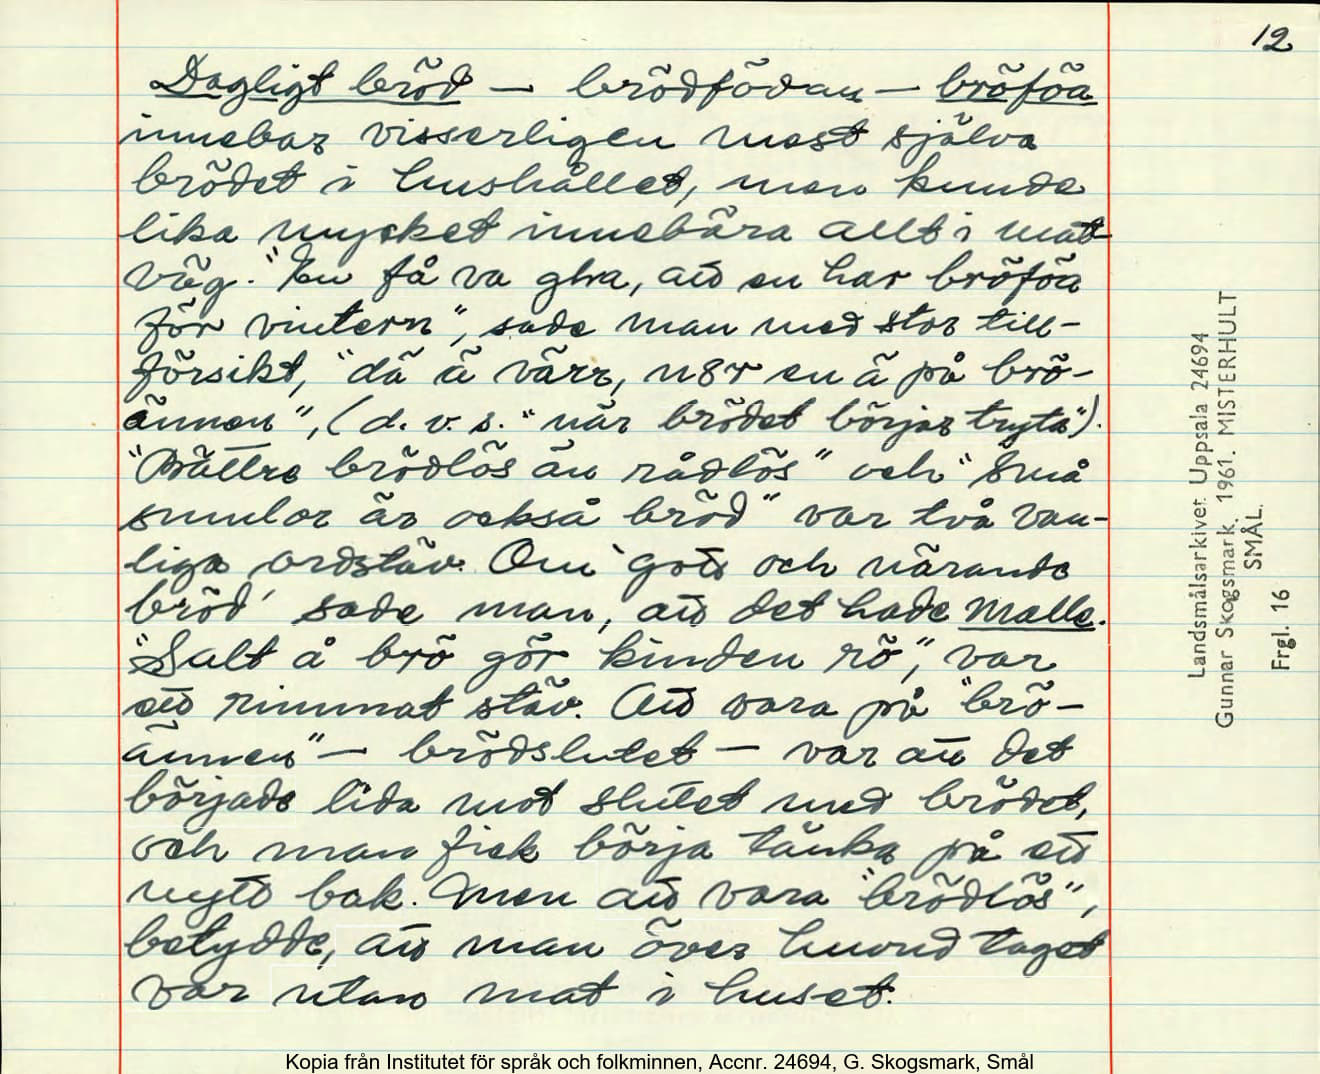 12
Dagligt bröd — brödfödan — bröföa
innebar visserligen mest själva
brödet i hushållet, men kunde
lika mycket innebära allt i mat-
väg. "En få va gla, att en har bröföa
för vintern", sade man med stor till-
försikt, "dä ä värr, när en ä på brö-
ännen", (d.v.s. "när brödet börjar tryta").
"Bättre brödlös än rådlös" och "Små
smulor är också bröd" var två van-
liga ordstäv. Om 'gott och närande
bröd' sade man, att det hade Malle.
"Salt å brö gör kinden rö", var
ett rimmat stäv. Att vara på "brö-
ännen" — brödslutet — var att det
började lida mot slutet med brödet,
och man fick börja tänka på ett
nytt bak. Men att vara "brödlös",
betydde, att man över huvud taget
var utan mat i huset.
Landsmålsarkivet Uppsala 24694
Gunnar Skogsmark. 1961. MISTERHULT
SMÅL.
Frgl. 16
Kopia från Institutet för språk och folkminnen, Accnr. 24694, G. Skogsmark, Smål